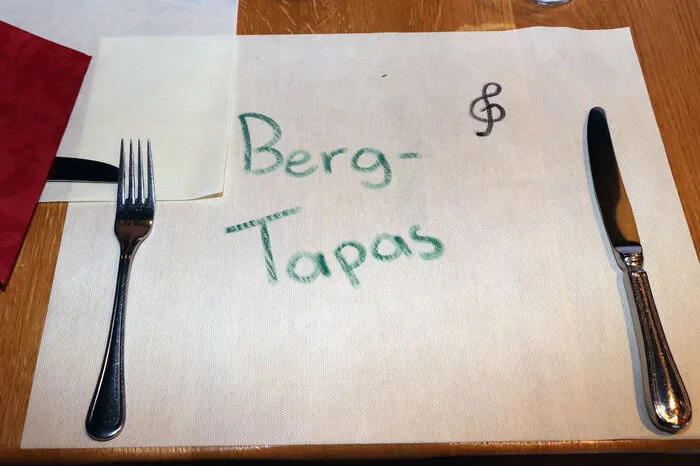 Berg-
Tapas